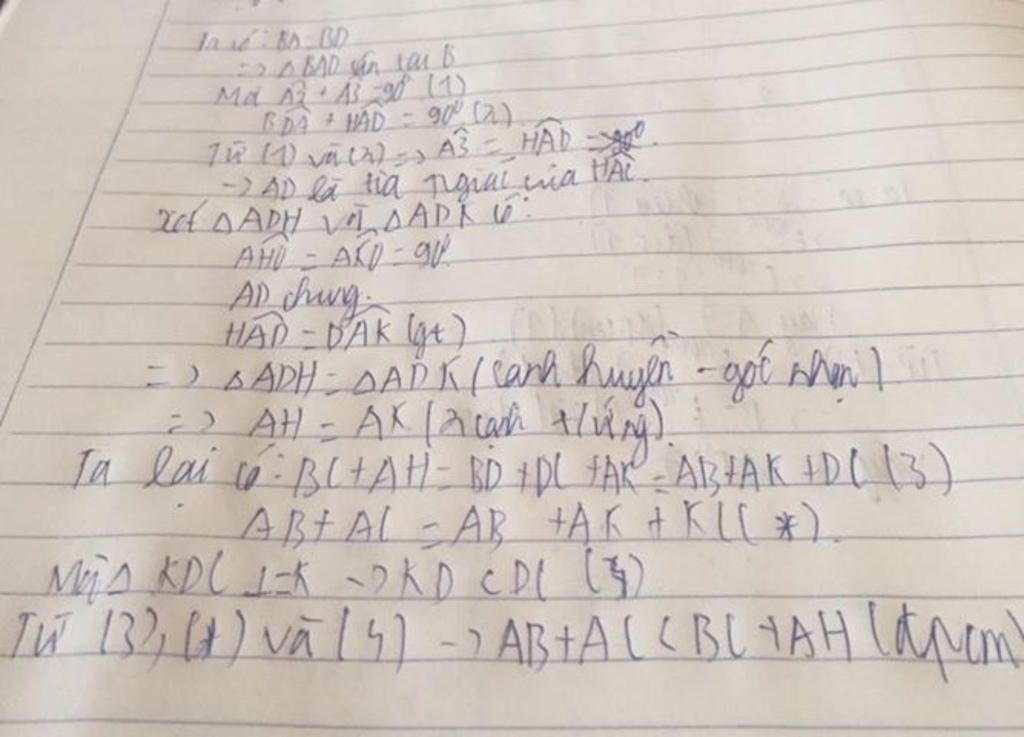 Ta có: BA=BD
=> △BAD cân tại B
Mà Â2 + Â3 = 90° (1)
BDA + HAD = 90° (2)
Từ (1) và (2) => Â3 = HAD
-> AD là tia p giác của HAC.
xét △ADH và △ADK có:
AHD = AKD = 90°
AD chung.
HAD = DAK (gt)
=> △ADH = △ADK (cạnh huyền - góc nhọn)
=> AH = AK (2 cạnh t/ứng)
Ta lại có: BC+AH = BD+DC+AK = AB+AK+DC (3)
AB+AC = AB +AK + KC (*).
Mà △ KDC ⊥=K -> KD < DC (4)
Từ (3), (*) và (4) -> AB+AC < BC+AH (đpcm)